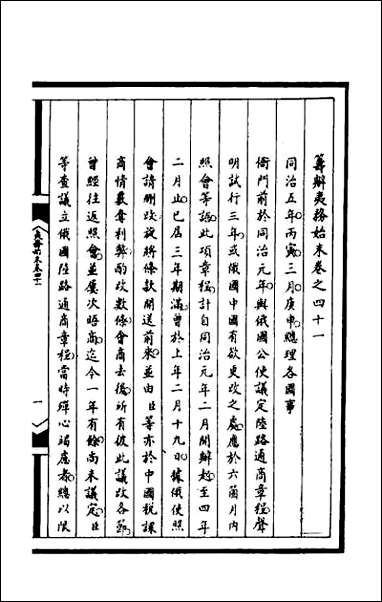 籌辦夷務始末卷之四十一
同治五年丙寅三月庚申總理各國事
衙門前於同治元年與俄國公使議定陸路通商章程聲
明試行三年或俄國中國有欲更改之處應於六箇月內
照會等語此項章程計自同治元年二月開辦起至四年
二月止已屆三年期滿曾於上年二月十九日據俄使照
會請刪改從將條款開送前來並由臣等亦於中國稅課
商情最要利弊酌改數條會商去後所有彼此議改各節
曾經往返照會並屢次晤商迄今一年有餘尚未議定臣
等查議立俄國陸路通商章程當時殫心竭慮者總以限
夷務始末卷四十一
一